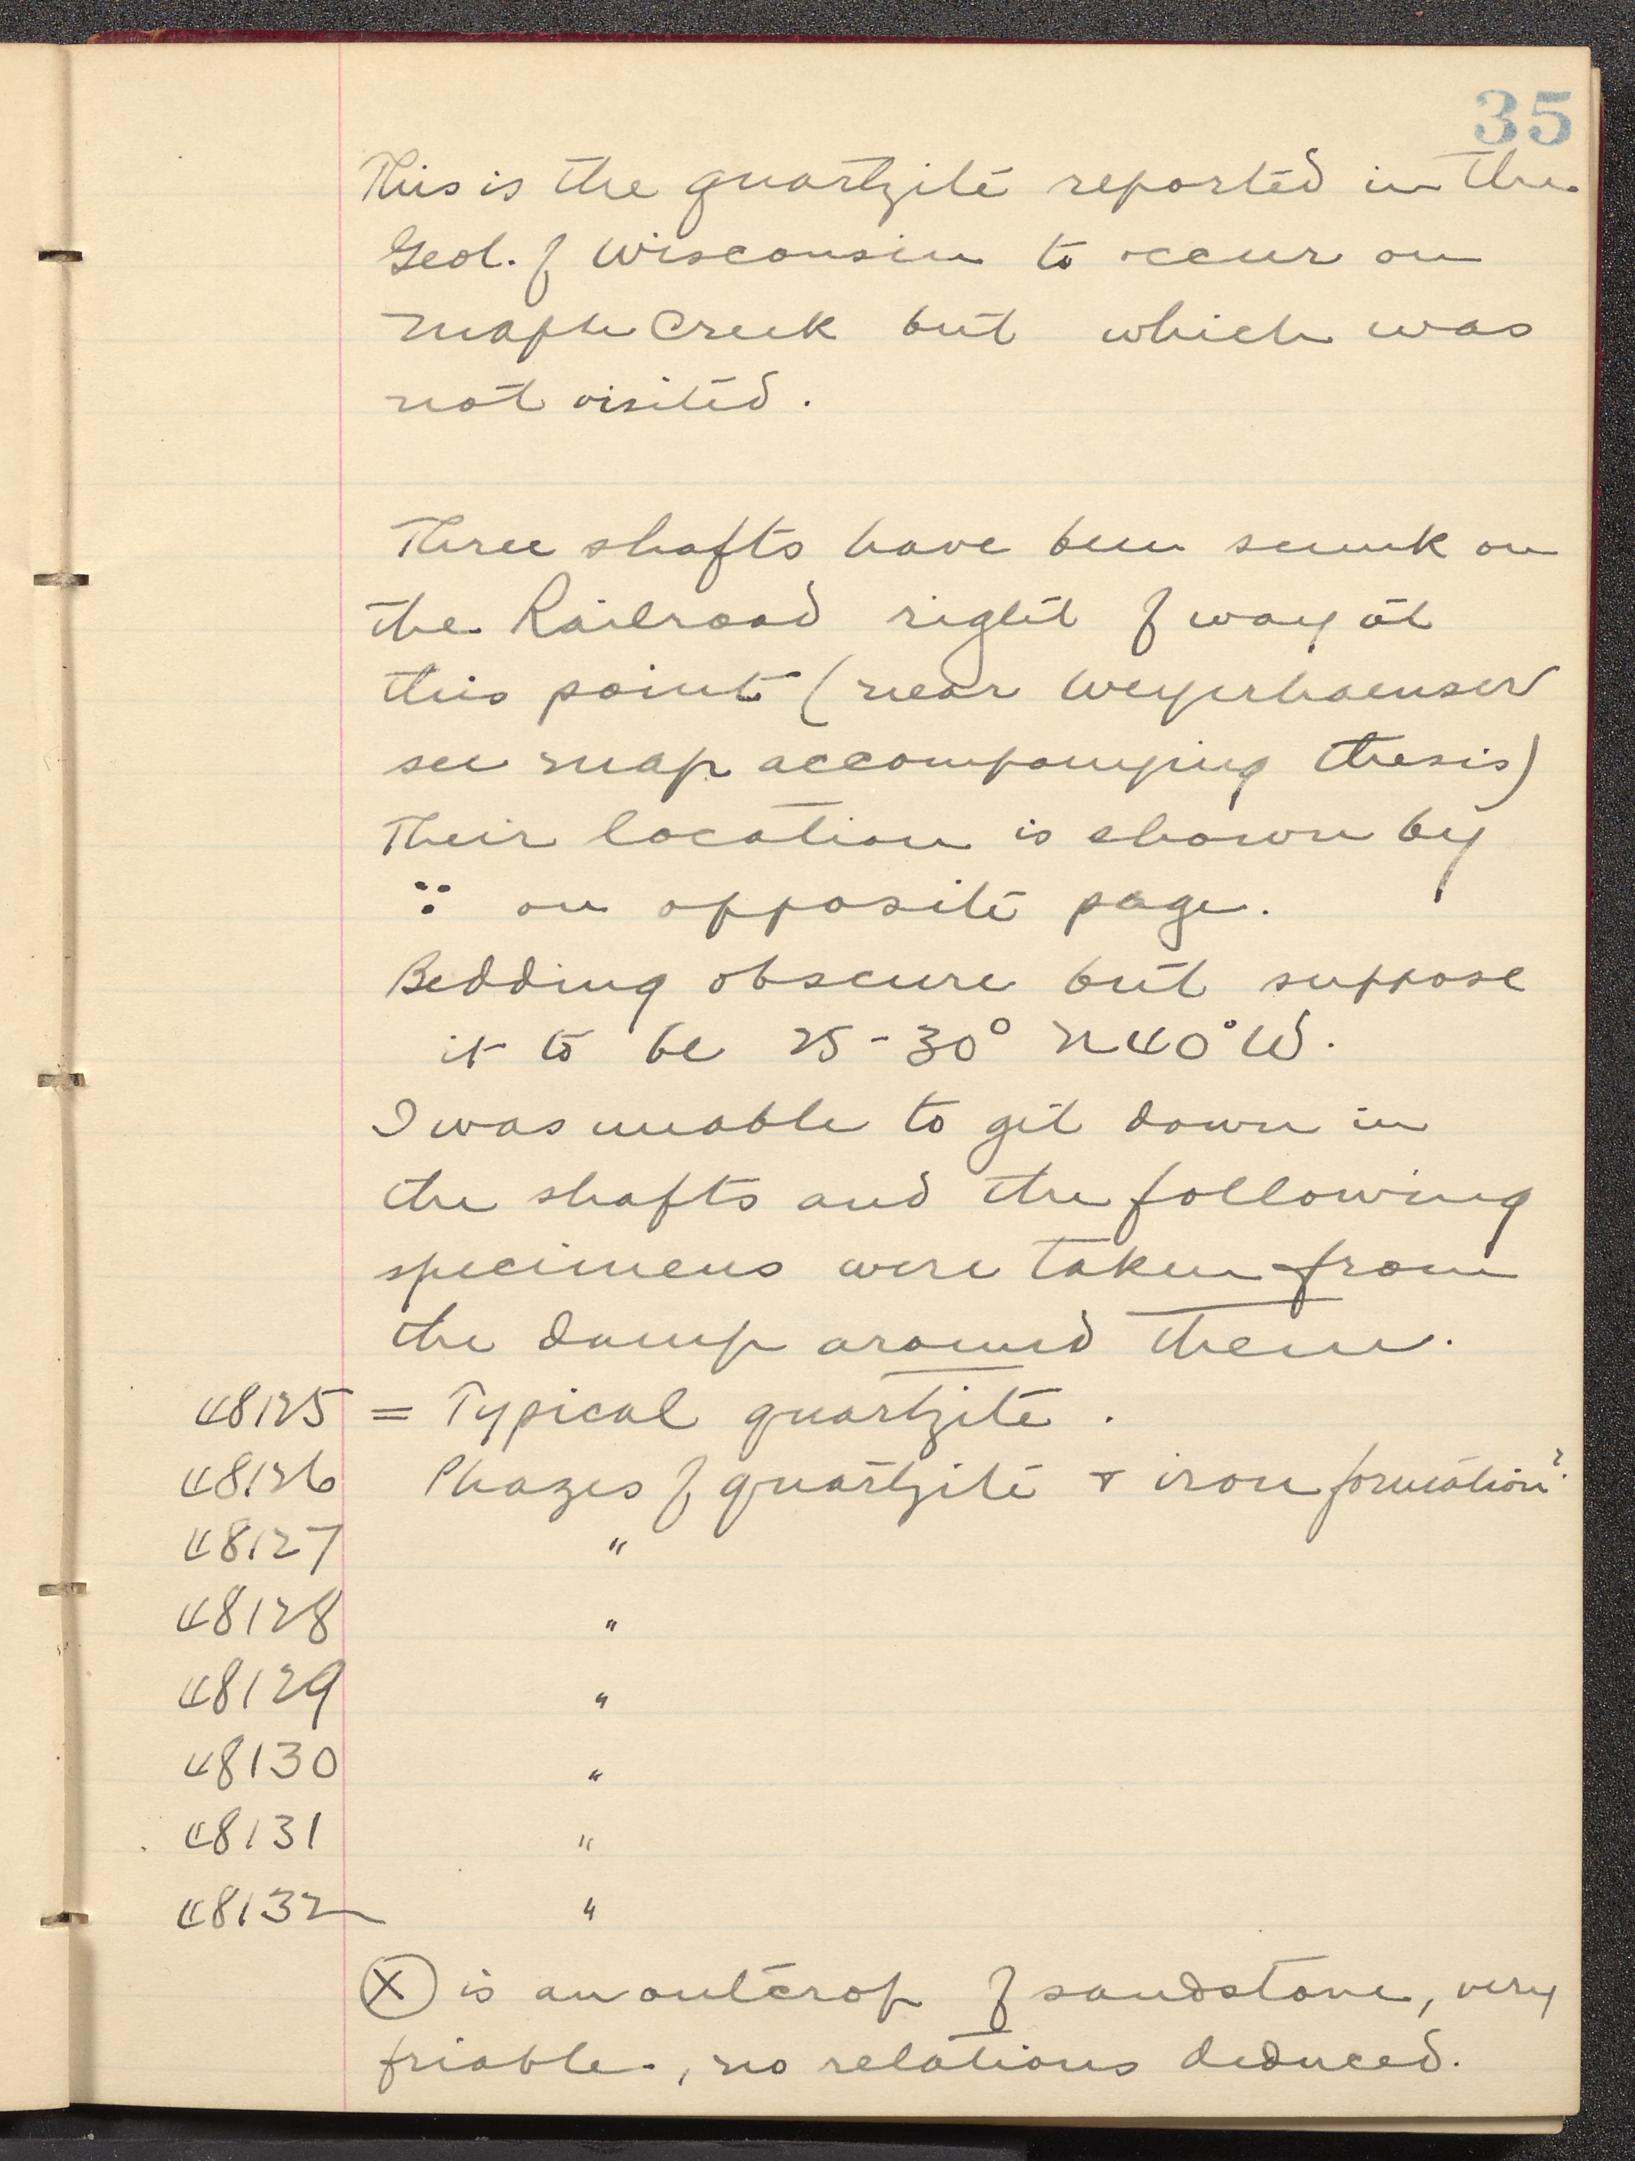 35
This is the quartzite reported in the
Geol. of Wisconsin to occur on
Maple Creek but which was
not visited.
Three shafts have been sunk on
the Railroad right of way at
this point (near Weyerhaeuser
see map accompanying thesis)
Their location is shown by
∵ on opposite page.
Bedding obscure but suppose
it to be 25-30° N40°W.
I was unable to get down in
the shafts and the following
specimens were taken from
the dump around them.
48125 = Typical quartzite.
48126 Phazes of quartzite & iron formation?
48127 "
48128 "
48129 "
48130 "
48131 "
48132 "
Ⓧ is an outcrop of sandstone, very
friable, no relations deduced.